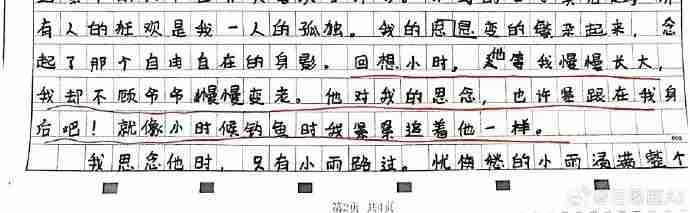 有人的狂欢是我一人的孤独。我的思思变的繁杂起来,念
起了那个自由自在的身影。回想小时。是他等我慢慢长大,
我却不顾爷爷慢慢变老。他对我的思念,也许是跟在我身
后吧!就像小时候钓鱼时我紧紧追着他一样。
我思念他时,只有小雨路过。忧愁的小雨滴满整个
第2页 共4页